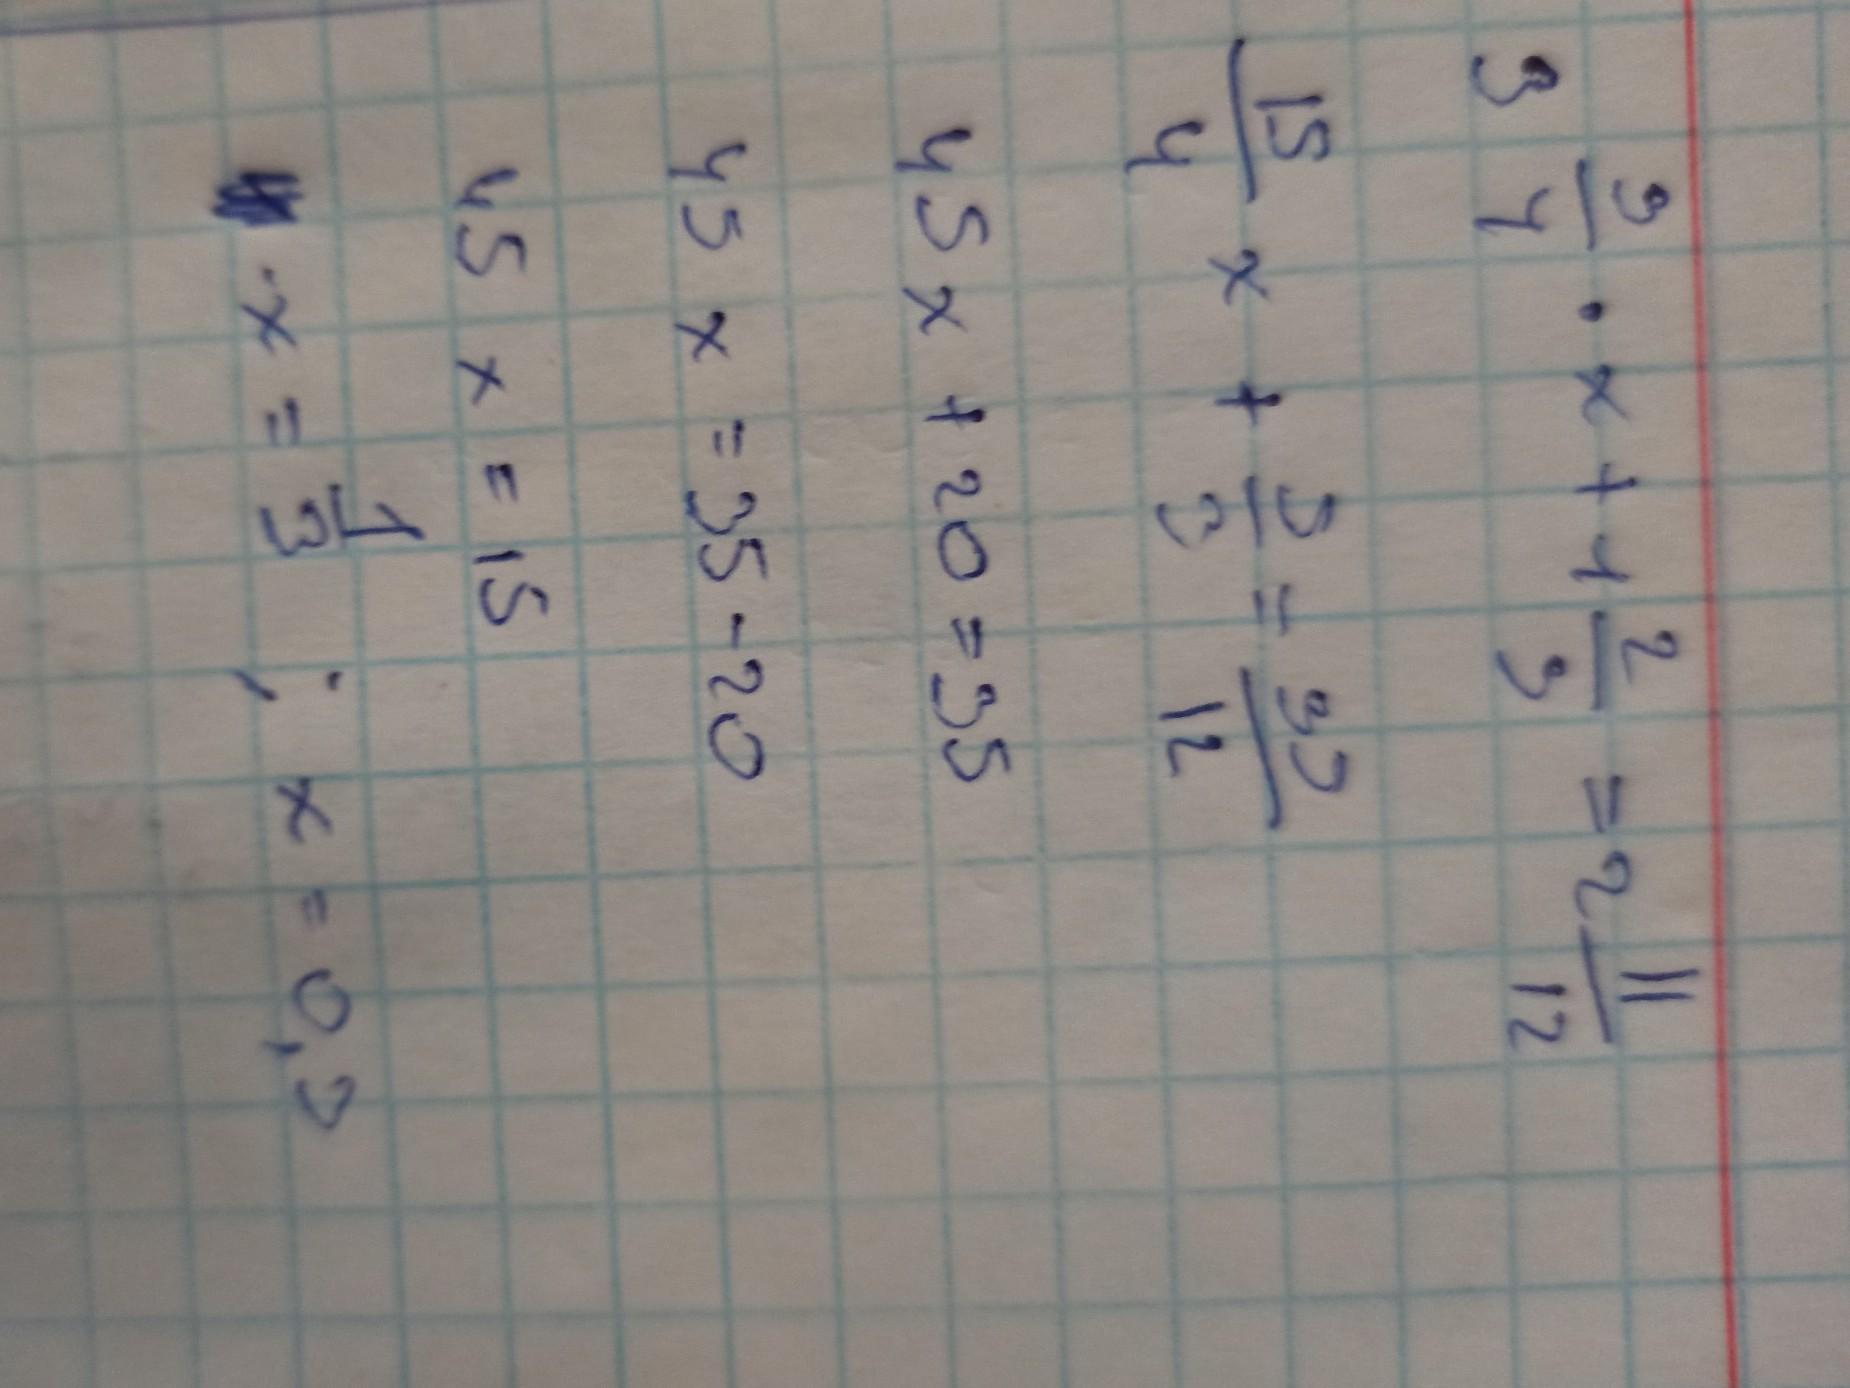 3 3/4 · x + 1 2/3 = 2 11/12
15/4 x + 5/3 = 35/12
45x + 20 = 35
45x = 35 - 20
45x = 15
x = 1/3 ; x = 0,3